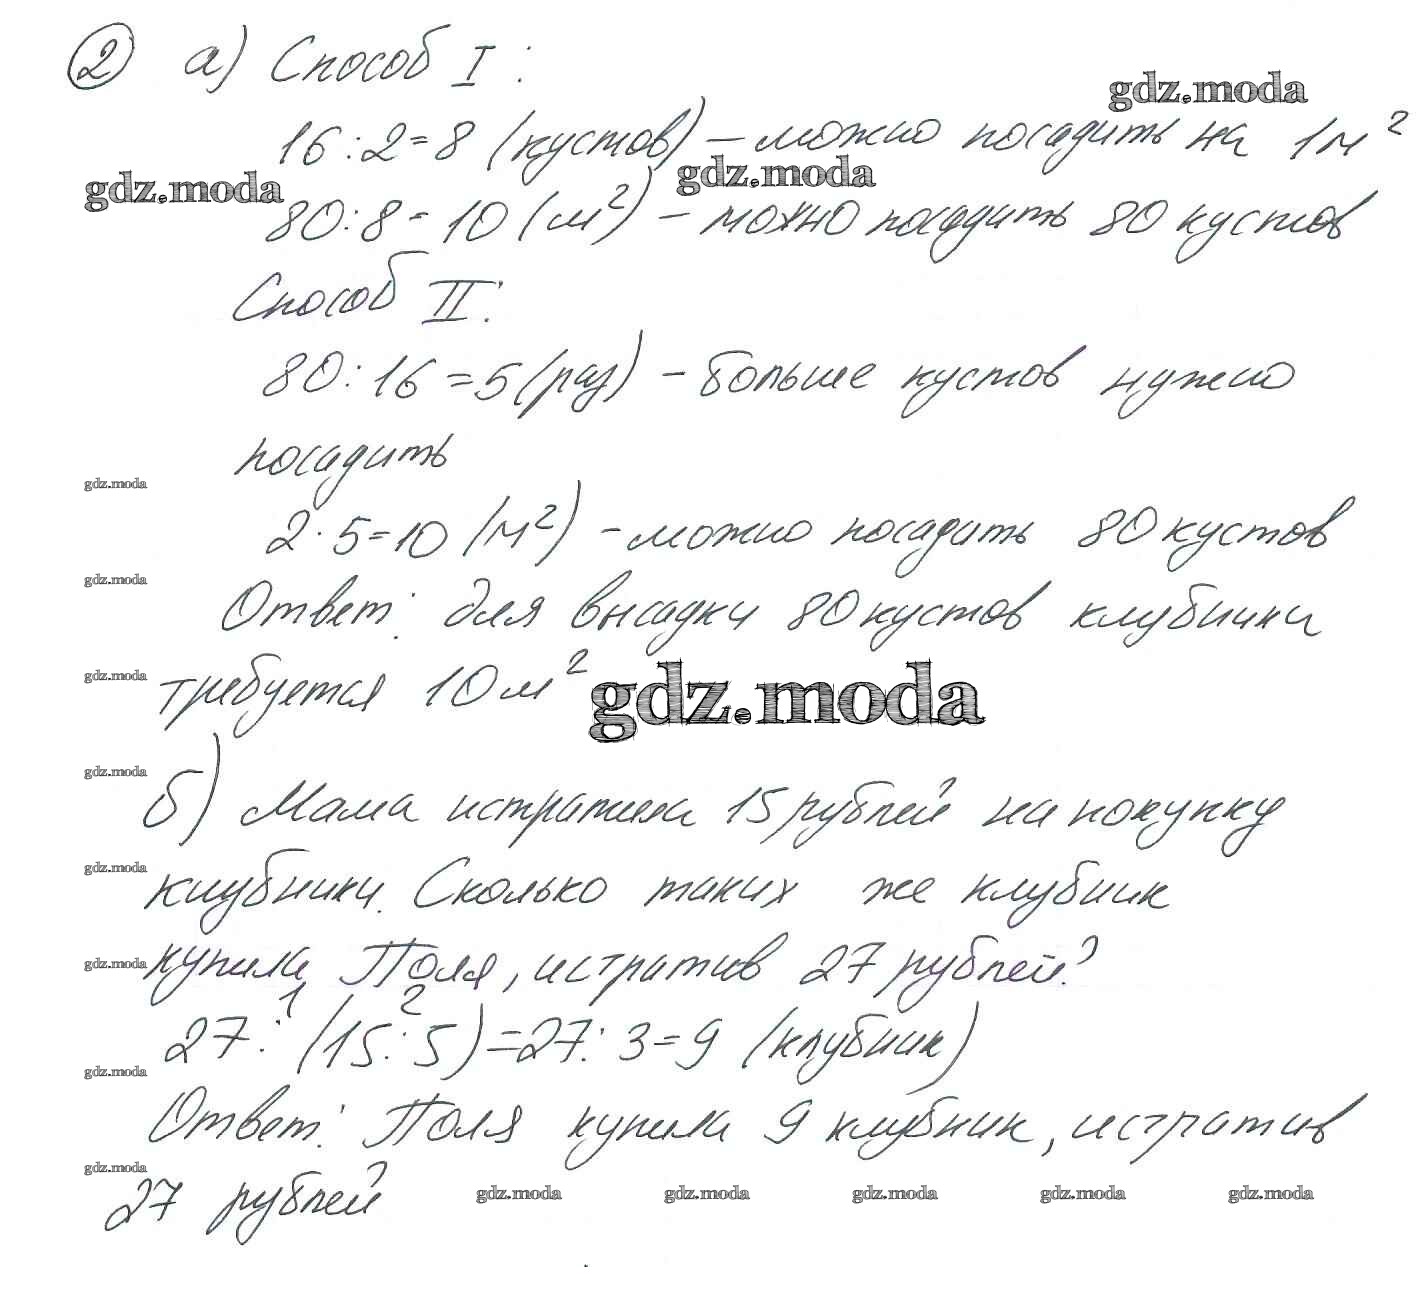 2 а) Способ I:
gdz.moda
16:2=8 (кустов) – можно посадить на 1м²
gdz.moda gdz.moda
80:8=10 (м²) – можно посадить 80 кустов
Способ II:
80:16=5 (раз) – больше кустов нужно
посадить
gdz.moda
2·5=10 (м²) – можно посадить 80 кустов
gdz.moda
Ответ: для высадки 80 кустов клубники
gdz.moda
требуется 10м²
gdz.moda
gdz.moda
б) Мама истратила 15 рублей на покупку
gdz.moda
клубники. Сколько таких же клубник
gdz.moda
купила Поля, истратив 27 рублей?
1 2
27:(15:5)=27:3=9 (клубник)
gdz.moda
Ответ: Поля купила 9 клубник, истратив
gdz.moda
27 рублей
gdz.moda gdz.moda gdz.moda gdz.moda gdz.moda